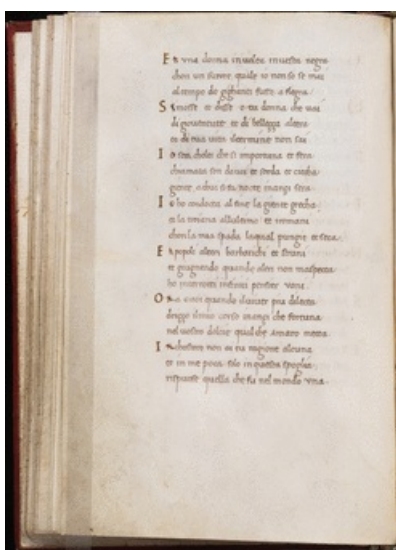 Et una donna involta in vesta negra
chon un furore quale io non so se mai
al tempo de gighanti fusse a flegra
Si mosse et disse o tu donna che vai
di gioventute et di bellezza altera
et di tua vita il termine non sai
Io son cholei che si importuna et fera
chiamata son da voi et sorda et ciecha
gente a chui si fa nocte inanzi sera
Io ho condocta al fine la gente grecha
et la troiana allultimo et romani
chon la mia spada laqual punge et secha
Et popoli altri barbareschi et strani
et giugnendo quando altri non maspecta
ho interrotti infiniti pensier vani
Or a voi quando il viver piu dilecta
drizzo il mio corso inanzi che fortuna
nel vostro dolcie qualche amaro metta
In chostoro non ai tu ragione alcuna
et in me pocha solo in questa spoglia
rispuose quella che fu nel mondo una